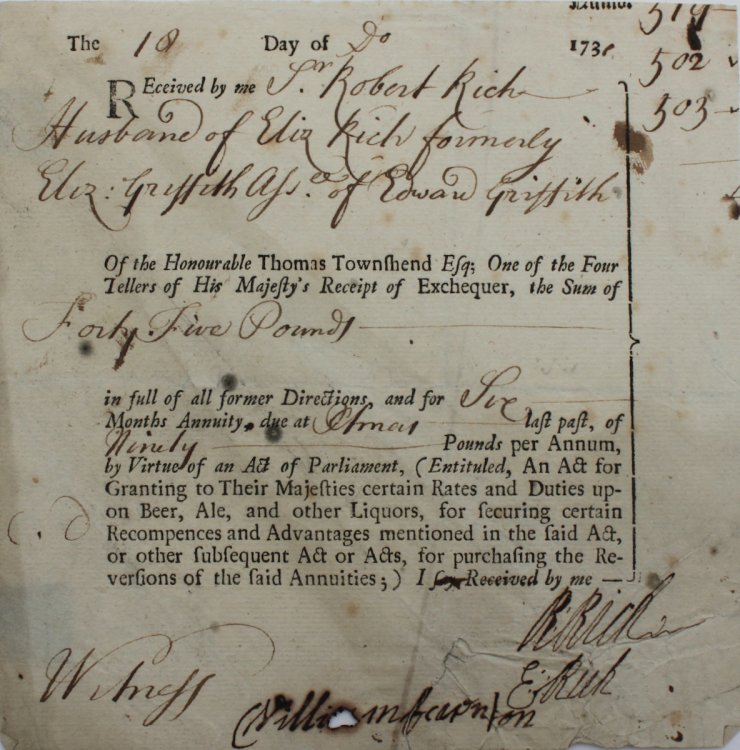 519
502
503
The 18 Day of Do 173
REceived by me Sr Robert Rich
Husband of Eliz Rich formerly
Eliz: Griffith Assee of Edward Griffith
Of the Honourable Thomas Townſhend Eſq; One of the Four
Tellers of His Majeſty's Receipt of Exchequer, the Sum of
Forty Five Pounds
in full of all former Directions, and for Six
Months Annuity, due at Xtmas laſt paſt, of
Ninety Pounds per Annum,
by Virtue of an Act of Parliament, (Entituled, An Act for
Granting to Their Majeſties certain Rates and Duties up-
on Beer, Ale, and other Liquors, for ſecuring certain
Recompences and Advantages mentioned in the ſaid Act,
or other ſubſequent Act or Acts, for purchaſing the Re-
verſions of the ſaid Annuities;) I ſay Received by me —
R: Rich
E: Rich
Witneſs
William